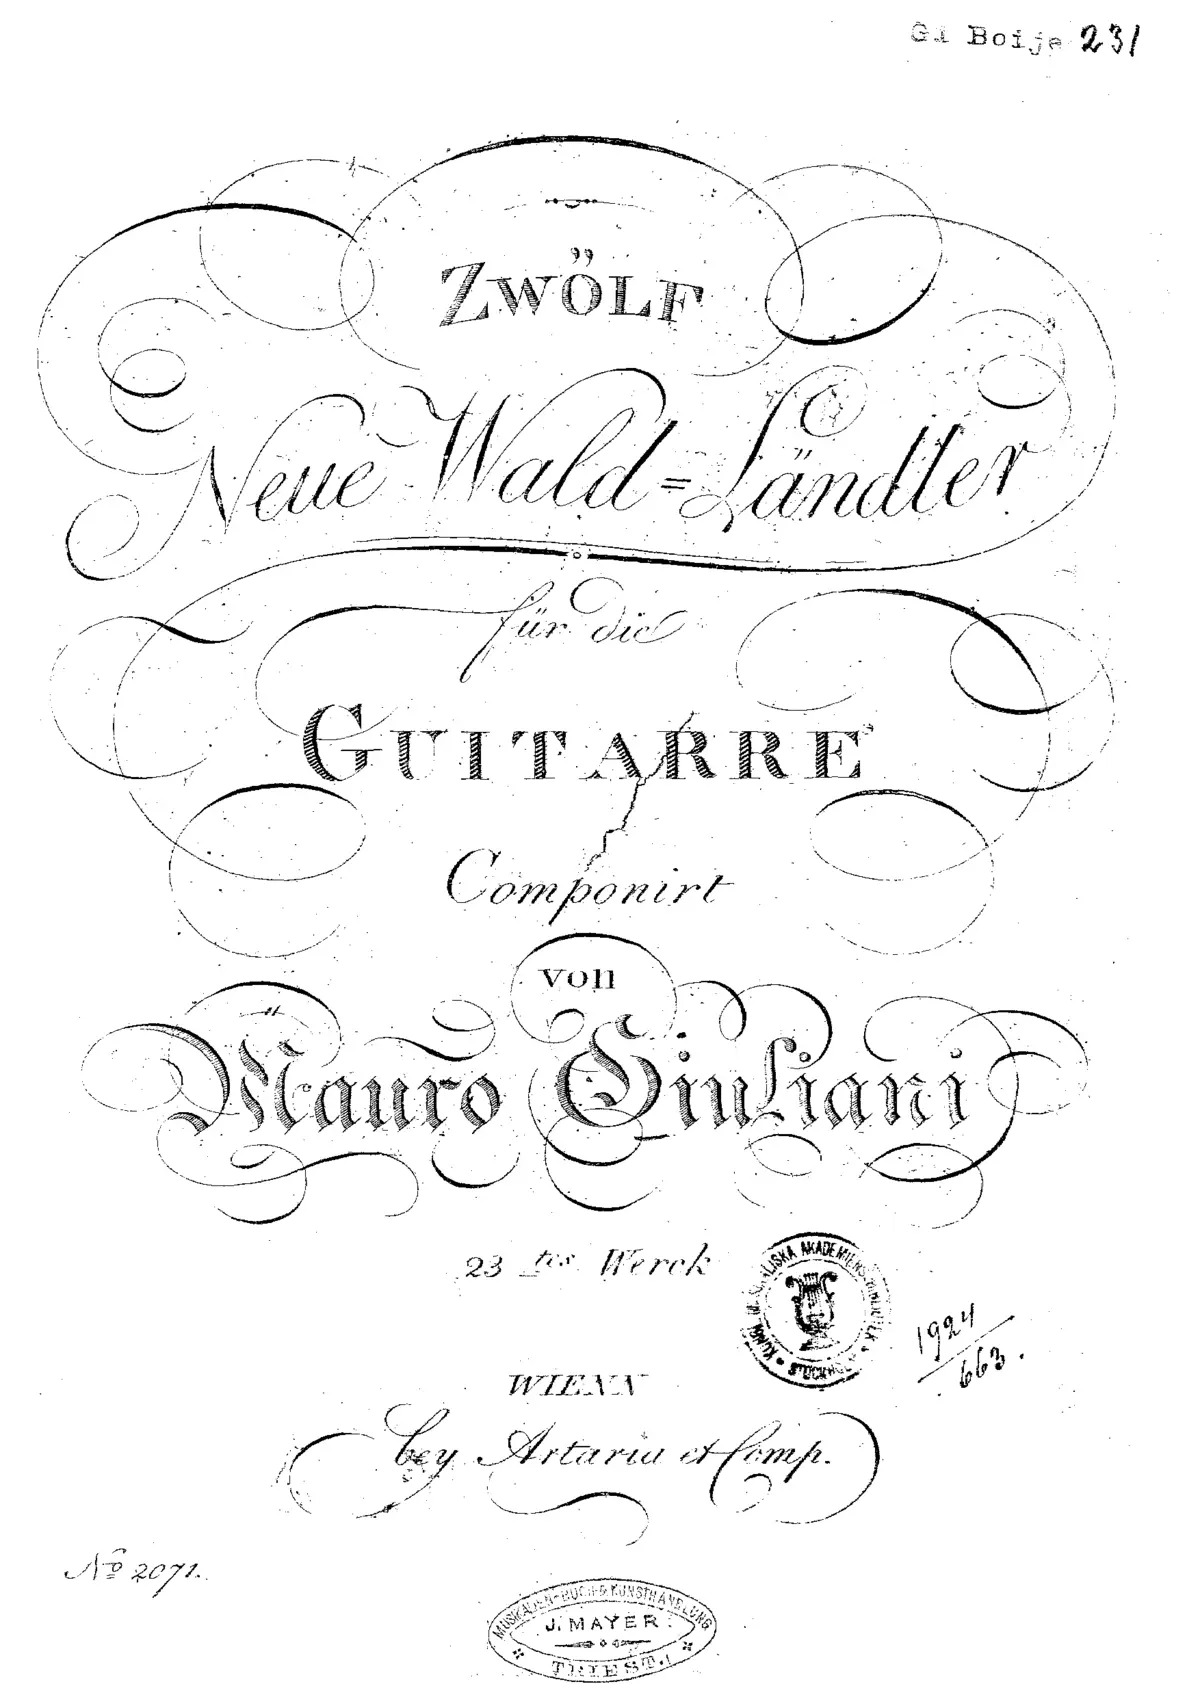 Gi Boije 231
ZWÖLF
Neue Wald=Ländler
für die
GUITARRE
Componirt
von
Mauro Giuliani
23tes Werck
KUNGL. MUSIKALISKA AKADEMIENS BIBLIOTEK
STOCKHOLM
1924
663.
WIENN
bey Artaria et Comp.
No 2071.
MUSIKALIEN-BUCH & KUNSTHANDLUNG
J. MAYER
TRIEST.